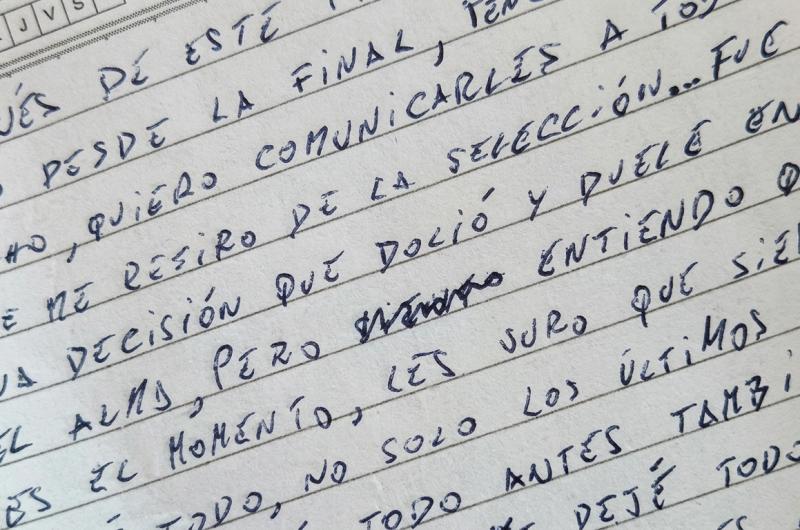 J V S
DE ESTE
DESDE LA FINAL,
QUIERO COMUNICARLES A
ME RETIRO DE LA SELECCIÓN... FUE
DECISIÓN QUE DOLIÓ Y DUELE EN
EL ALMA, PERO ENTIENDO
ES EL MOMENTO, LES JURO QUE
TODO, NO SOLO LOS ÚLTIMOS
TODO ANTES
DEJÉ TODO